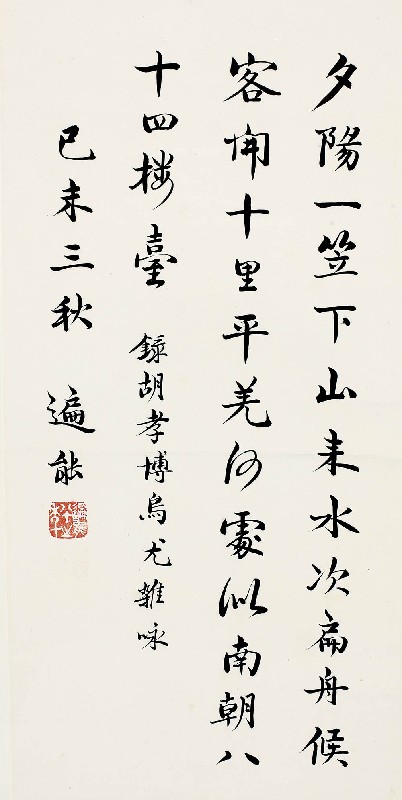 夕陽一笠下山来水次扁舟候
客開十里平羌何處似南朝八
十四楼臺
録胡孝博烏尤雜咏
己未三秋 遍能